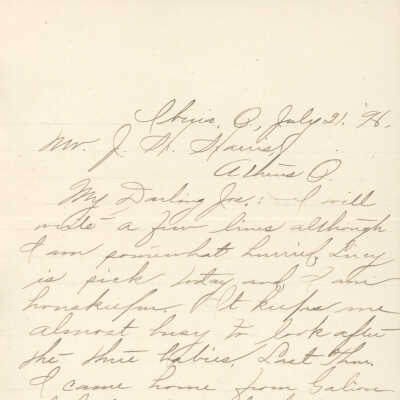 O., July 21. '96.
Mr. J. W. Harris,
Athens O.
My Darling Joe,: – I will
write a few lines although
I am somewhat hurried, Lucy
is sick today and I am
housekeeper. It keeps me
almost busy to look after
the three babies. Last Thu.
I came home from Galion